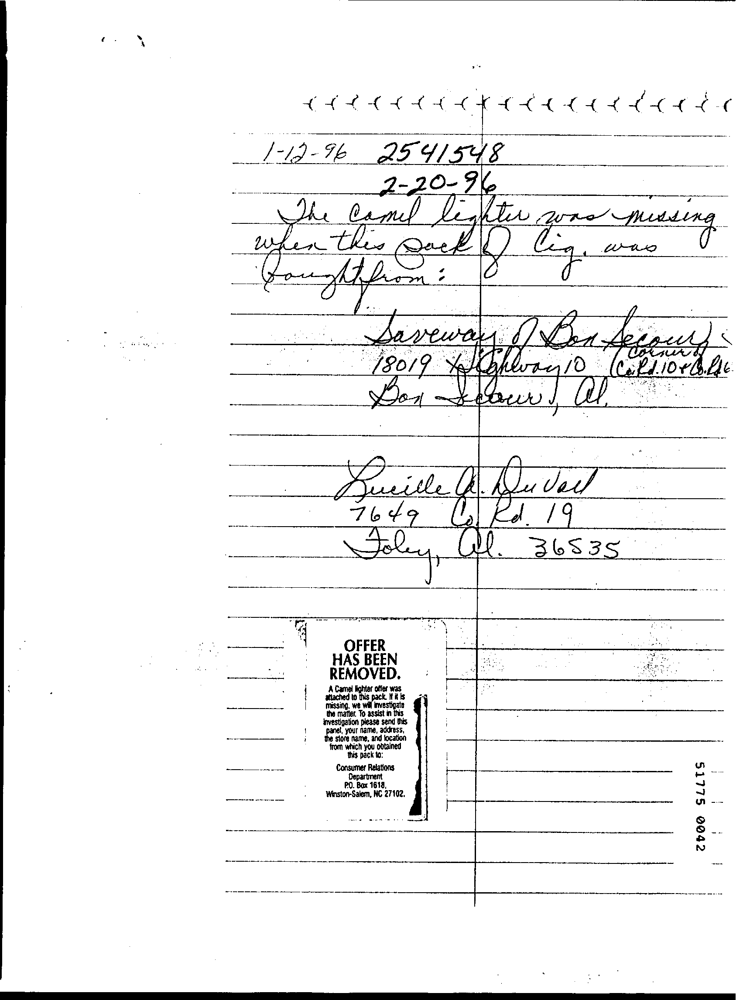 1-12-96 2541548
2-20-96
The Camel lighter was missing
when this pack of Cig. was
bought from:
Saveway of Bon Secour,
18019 Highway 10 (Corner of
Co. Rd. 10 + Co. Rd 6
Bon Secour, Al.
Lucille A. DuVall
7649 Co. Rd. 19
Foley, Al. 36535
OFFER
HAS BEEN
REMOVED.
A Camel lighter offer was
attached to this pack. If it is
missing, we will investigate
the matter. To assist in this
investigation please send this
panel, your name, address,
the store name, and location
from which you obtained
this pack to:
Consumer Relations
Department
P.O. Box 1618,
Winston-Salem, NC 27102.
51775 0042